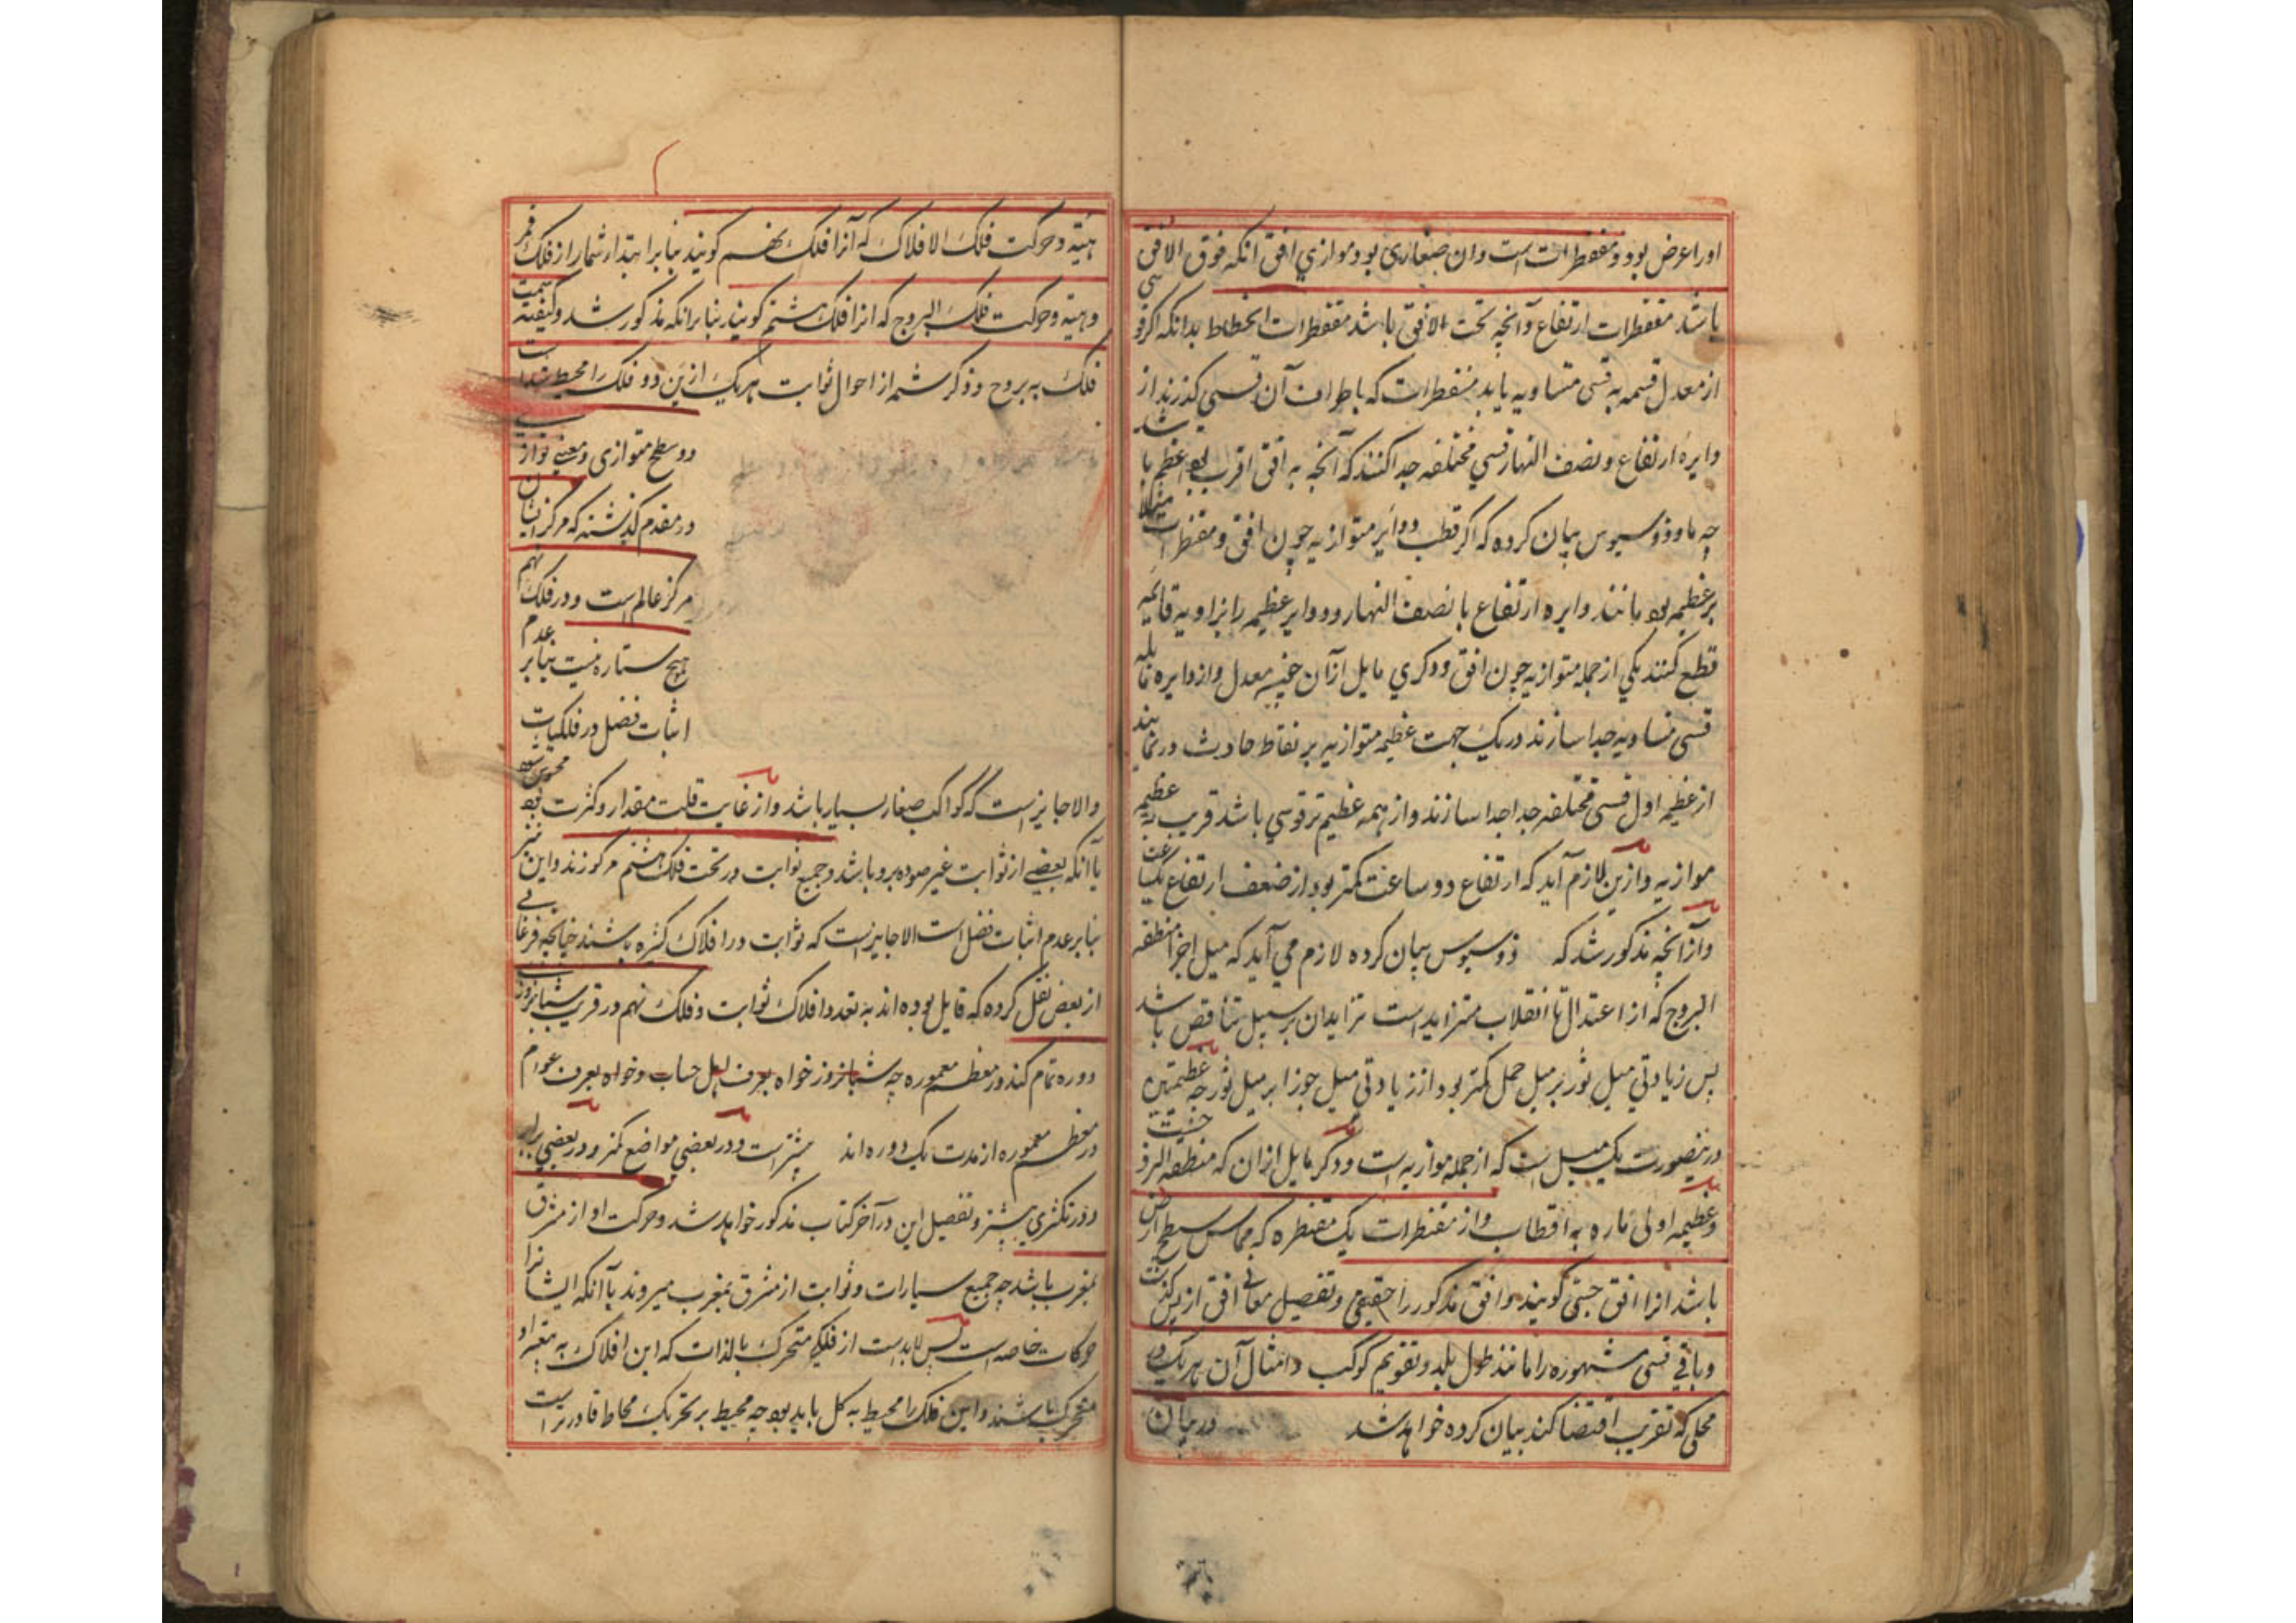 او را عرض بود و مقنطرات است و ان صغاری بود موازی افق انکه فوق الافق
باشد مقنطرات ارتفاع و آنچه تحت الافق باشد مقنطرات انحطاط بدانکه اکر قوسی
از معدل قسمه به قسی متساویه یابد مقنطرات که باطراف آن قسی کذرند از
دایرهٔ ارتفاع و نصف النهار قسی مختلفه جدا کنند که آنچه به افق اقرب بود اعظم باشد
چه ماووذوسیوس بیان کرده که اکر قطب دوایر متوازیه چون افق و مقنطرات مثلا
بر عظیمه بود مانند دایره ارتفاع با نصف النهار و دو دایر عظیمه را بزاویه قایمه
قطع کنند یکی از جمله متوازیه چون افق و دکری مایل از آن معدل و از دایره مایله
قسی متساویه جدا سازند در یک جهت عظیمه متوازیه بر نقاط حادث در
از عظیمه اول قسی مختلفه جدا جدا سازند و از همه عظیم تر قوسی باشد قریب به عظیمه
موازیه و ازین لازم آید که ارتفاع دو ساعت کمتر بود از ضعف ارتفاع یکساعت
و از آنچه مذکور شد که ذوسیوس بیان کرده لازم می آید که میل اجزا منطقه
البروج که از اعتدال تا انقلاب متزاید است تزاید ان بر سبیل تناقص باشد
پس زیادتی میل ثور بر میل حمل کمتر بود از زیادتی میل جوزا بر میل ثور چه عظیمتین
درینصورت یک میل است که از جمله موازیه است و دکر مایل ازان که منطقه البروجست
و عظیمه اولی ماره به اقطاب و از مقنطرات یک مقنطره که مماس سطح ارض
باشد انرا افق حسی کویند و افق مذکور را حقیقی و تفصیل معانی افق از پس کذشت
و باقی قسی مشهوره را مانند طول بلد و تقویم کوکب و امثال آن هر یک در
محلی که تقریب اقتضا کند بیان کرده خواهد شد در بیان
هیئة و حرکت فلک الافلاک که آنرا فلک نهم کویند بنابر ابتدا شمار از فلک قمر
و هیئة و حرکت فلک البروج که انرا فلک هشتم کویند بنابر انکه مذکور شد و کیفیة قسمت
فلک به بروج و ذکر شمه از احوال ثوابت هر یک ازین دو فلک را محیط است
دو سطح متوازی و معنی توازی
در مقدم کذشته که مرکز ایشان
مرکز عالم است و در فلک نهم
هیچ ستاره نیست بنابر عدم
اثبات فضل در فلکیات
و الا جایز است که کواکب صغار بسیار باشد و از غایت قلت مقدار و کثرت بعد محسوس نشود
با آنکه بعضی از ثوابت غیر مرصوده برو باشد و جمیع ثوابت در تحت فلک هشتم مرکوزند و این نیز
بنابر عدم اثبات فضل است الا جایز است که ثوابت در افلاک کثیره باشند چنانچه فرغانی
از بعض نقل کرده که قایل بوده اند به تعدد افلاک ثوابت و فلک نهم در قریب شبانروزی
دوره تمام کند در معظم معموره چه شبانروز خواه بعرف اهل حساب و خواه بعرف عوام
در معظم معموره از مدت یک دوره اند بیشتر است و در بعضی مواضع کمتر و در بعضی برابر
و در تکثری بیشتر و تفصیل این در آخر کتاب مذکور خواهد شد و حرکت او از مشرق
بمغرب باشد چه جمیع سیارات و ثوابت از مشرق بمغرب میروند با آنکه ایشانرا
حرکات خاصه است پس لابد است از فلکی متحرک بالذات که این افلاک به
متحرک باشند و این فلک را محیط به کل باید بود چه محیط بر تحریک محاط قادرتر است